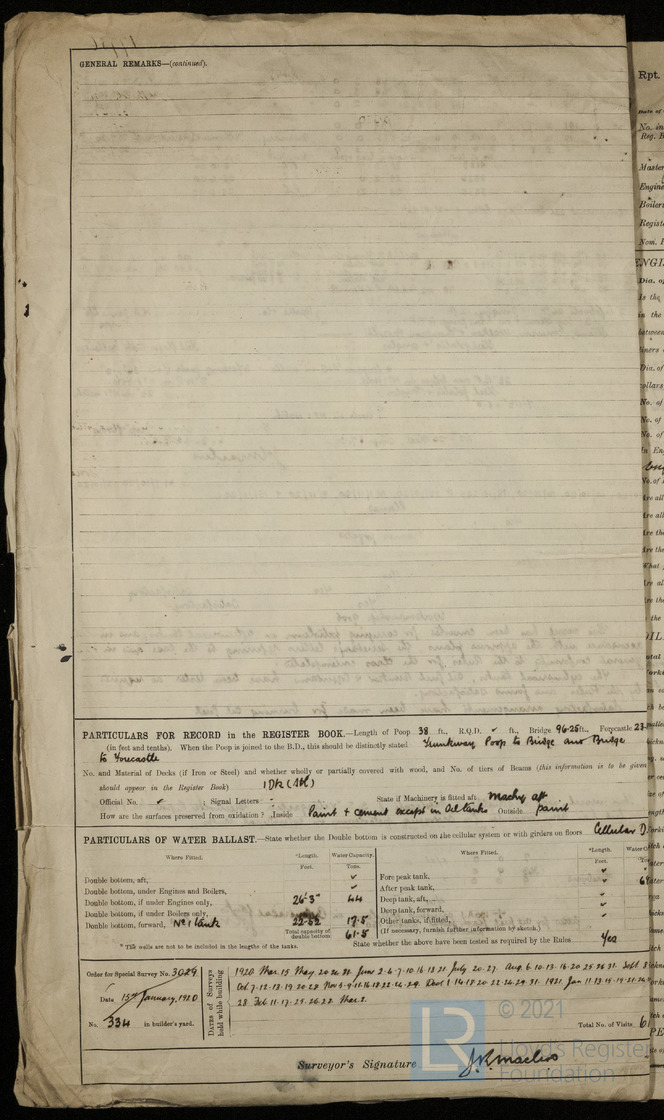 GENERAL REMARKS—(continued).
PARTICULARS FOR RECORD in the REGISTER BOOK.—Length of Poop 38 ft., R.Q.D. ✓ ft., Bridge 96·25 ft., Forecastle 23
(in feet and tenths). When the Poop is joined to the B.D., this should be distinctly stated Trunkway Poop to Bridge and Bridge
to Forecastle
No. and Material of Decks (if Iron or Steel) and whether wholly or partially covered with wood, and No. of tiers of Beams (this information is to be given
should appear in the Register Book) 1 Dk (Stl)
Official No. ✓ ; Signal Letters State if Machinery is fitted aft Machy aft
How are the surfaces preserved from oxidation? Inside Paint + cement except in Oil tanks Outside paint
PARTICULARS OF WATER BALLAST.—State whether the Double bottom is constructed on the cellular system or with girders on floors Cellular D.
Where Fitted. *Length. Water Capacity. Where Fitted. *Length. Water
Feet. Tons. Feet.
Double bottom, aft, ✓ Fore peak tank, ✓
Double bottom, under Engines and Boilers, ✓ After peak tank, ✓
Double bottom, if under Engines only, 26·5 44 Deep tank, aft, ✓
Double bottom, if under Boilers only, Deep tank, forward, ✓
Double bottom, forward, No 1 tank 22·52 17·5 Other tanks, if fitted, ✓
Total capacity of double bottom 61·5 (If necessary, furnish further information by sketch.)
* The wells are not to be included in the lengths of the tanks. State whether the above have been tested as required by the Rules Yes
Order for Special Survey No. 3029
Date 15th January, 1920
No. 334 in builder's yard.
DATES of Surveys held while building
1920 Mar. 15 May. 20·26·31 June 2·4·7·10·16·18·21 July 20·27 Aug. 6·10·13·16·20·25·26·31 Sept 8
Oct 7·12·13·19·20·28 Nov 5·9·11·16·18·22·24·29 Dec 1·14·18·20·22·26·29·31 1921 Jan 11·13·15·19·21·26
28 Feb 11·17·23·26·22 Mar 2.
Total No. of Visits 6
Surveyor's Signature J.K. Macleod
© 2021
LR
Lloyds Register
Foundation
Rpt.
No. in
Reg. B
Master
Engine
Boilers
Regist
Nom. H
ENGI
Dia. of
Is the
in the
between
liners
Dia. of
collars
No. of
No. of
No. of
In En
No. of
Are all
Are all
Are the
Are the
What
Are al
the